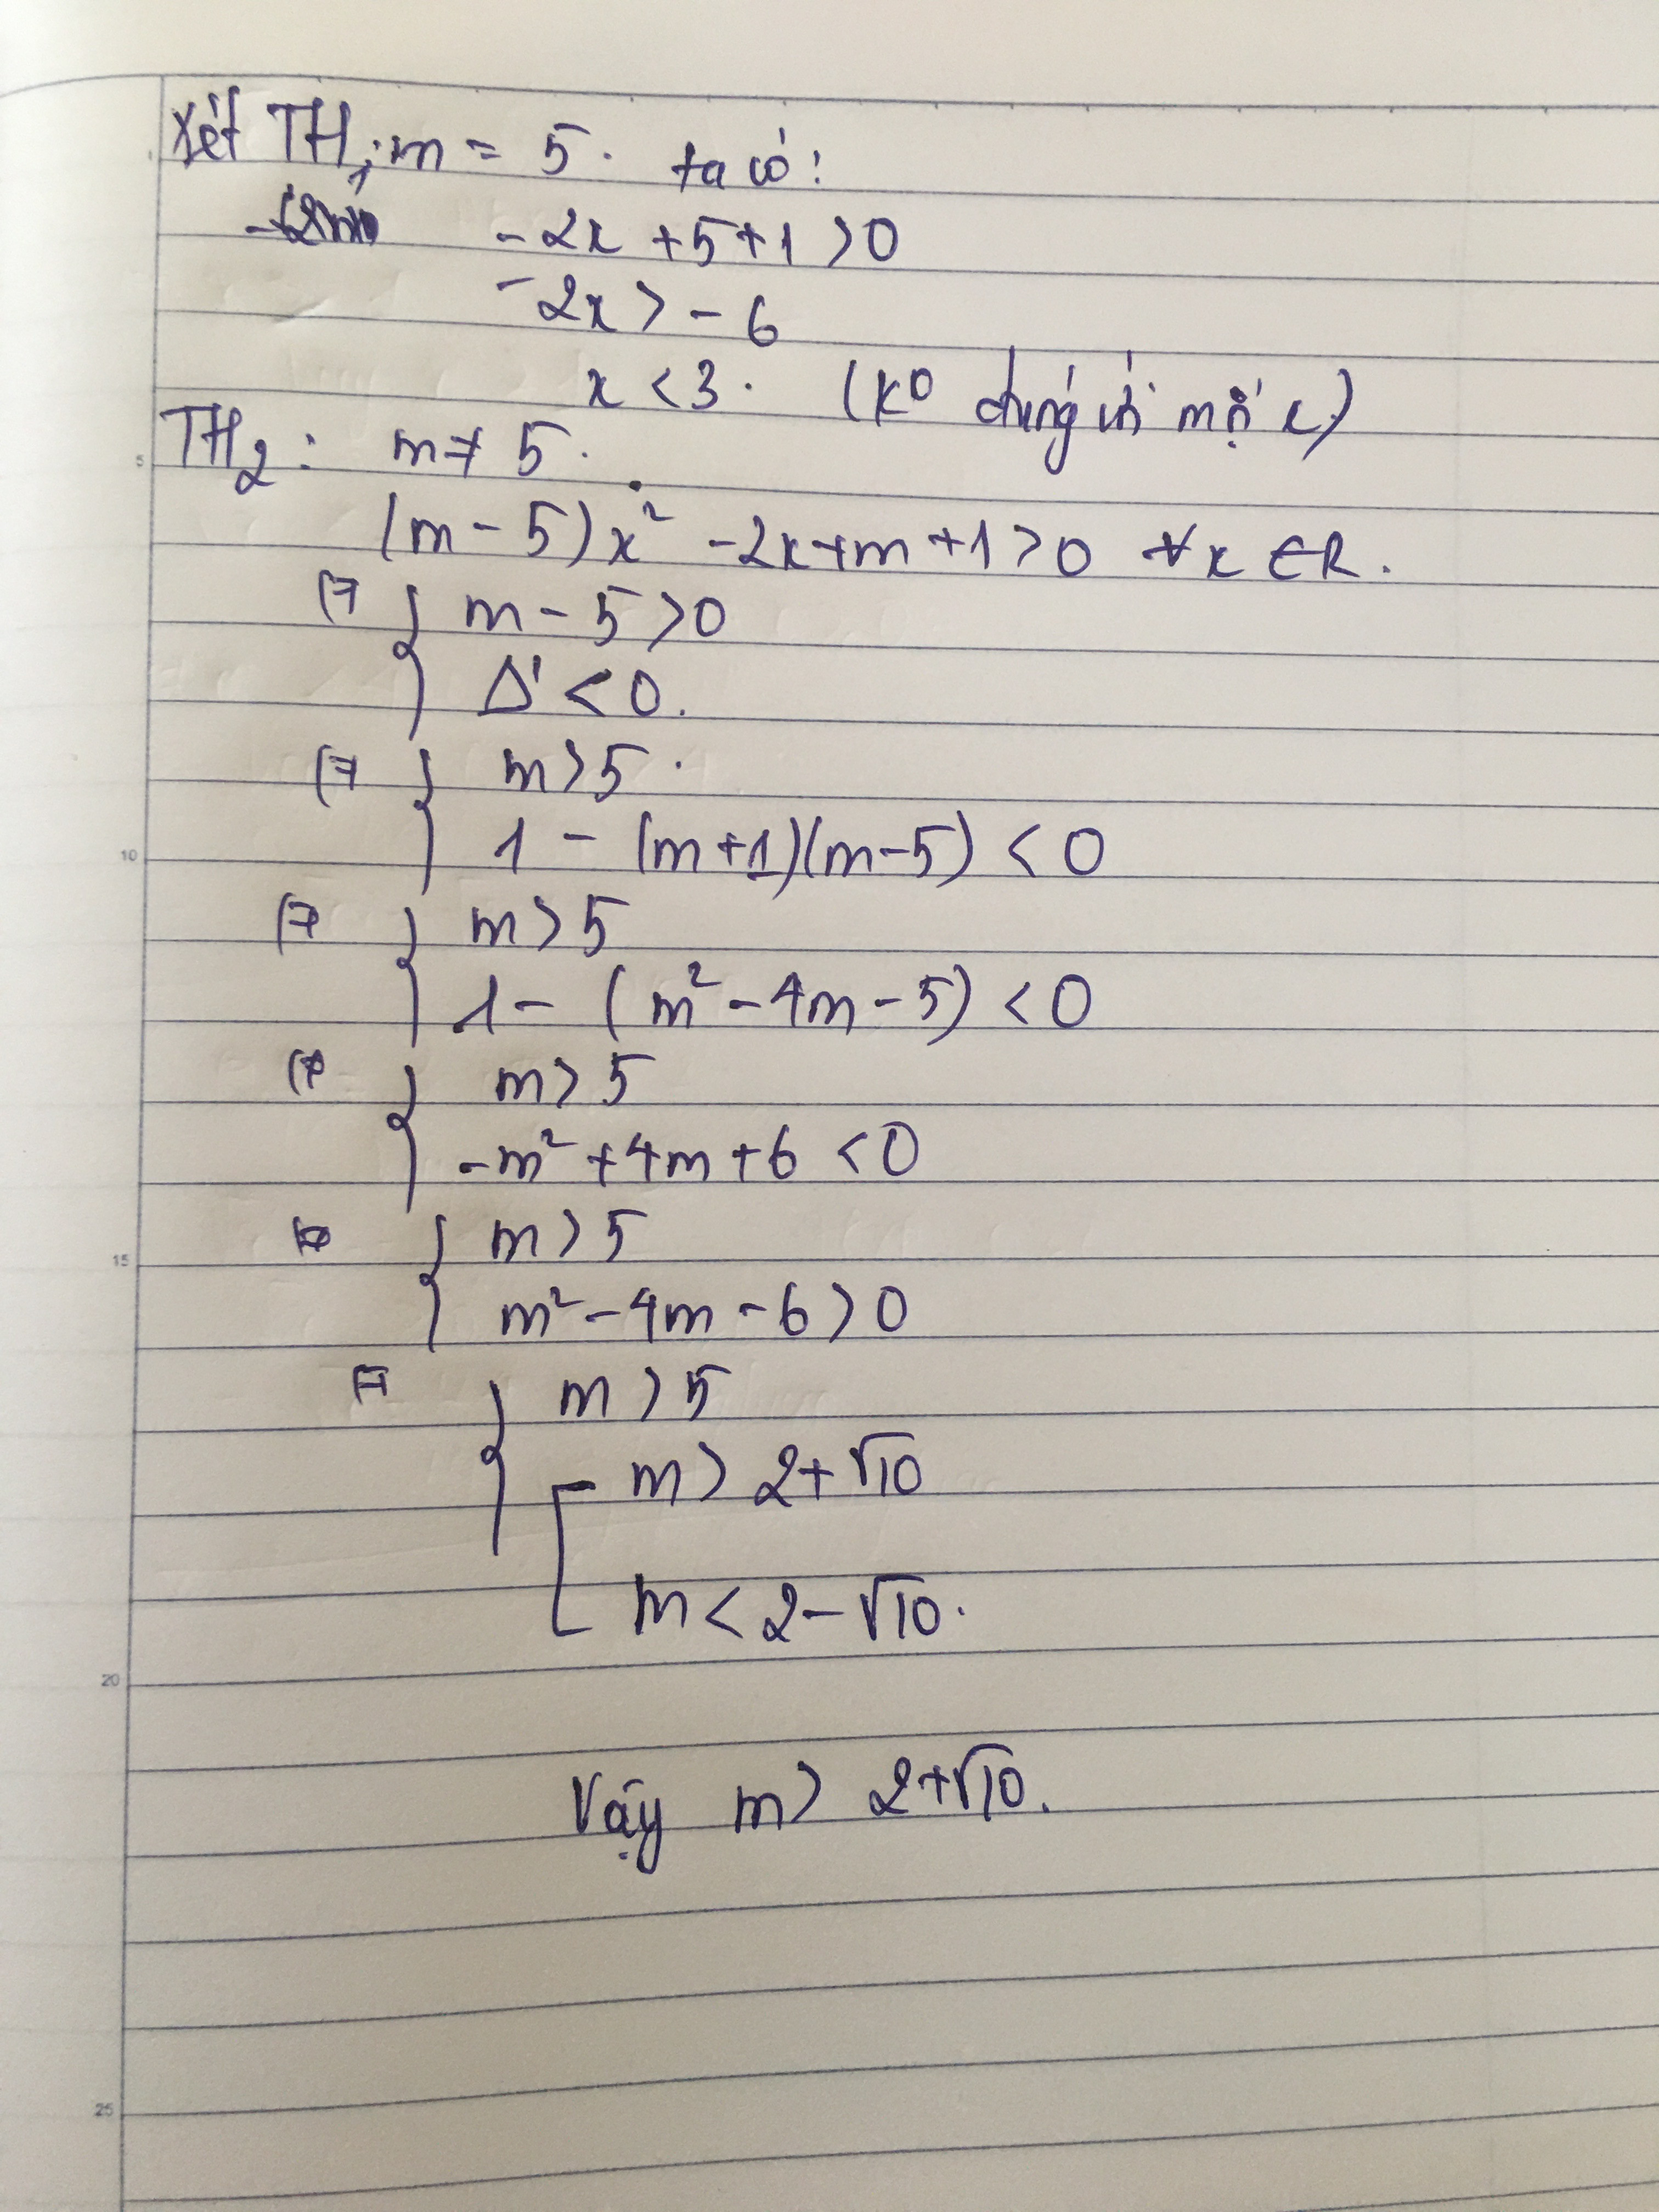 Xét TH1: m = 5. ta có:
-2x + 5 + 1 > 0
-2x > -6
x < 3. (ko đúng với mọi x)
TH2: m ≠ 5.
(m - 5)x² - 2x + m + 1 > 0 ∀x ∈ R.
⇔ { m - 5 > 0
Δ' < 0.
⇔ { m > 5.
1 - (m+1)(m-5) < 0
⇔ { m > 5
1 - (m² - 4m - 5) < 0
⇔ { m > 5
-m² + 4m + 6 < 0
⇔ { m > 5
m² - 4m - 6 > 0
⇔ { m > 5
[ m > 2 + √10
m < 2 - √10.
Vậy m > 2 + √10.
5
10
15
20
25